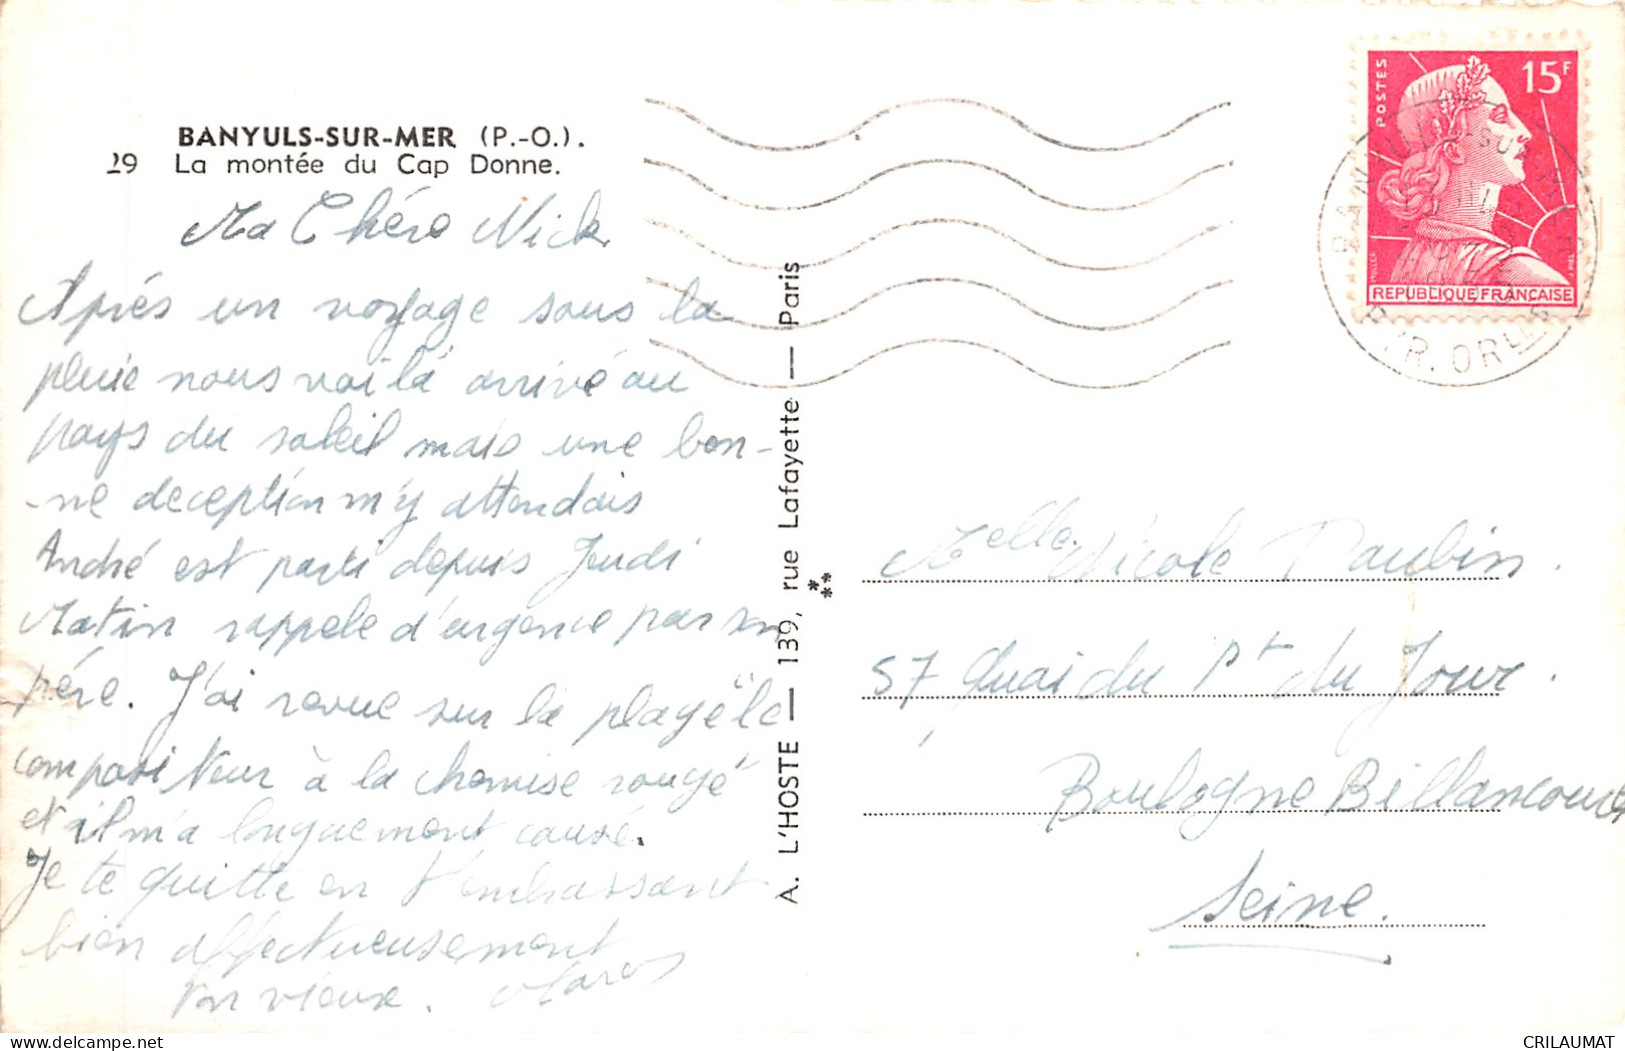 BANYULS-SUR-MER (P.-O.).
29 La montée du Cap Donne.
Ma Chére Nick
Aprés un voyage sous la
pluie nous voila arrivé au
pays du soleil mais une bon-
-ne deception m'y attendais
André est parti depuis Jeudi
Matin rappele d'urgence par son
pére. J'ai revue sur la plage "le
compositeur à la chemise rouge"
et il m'a longuement causé.
Je te quitte en t'embrassant
bien affectueusement
Ton vieux.
A. L'HOSTE — 139, rue Lafayette — Paris
POSTES
15F
MULLER
J. PIEL
REPUBLIQUE FRANÇAISE
BANYULS SUR MER
PYR. ORLES
Melle. Nicole Daubin.
57 Quai du Pt du Jour.
Boulogne Billancourt
Seine.
delcampe.net
CRILAUMAT